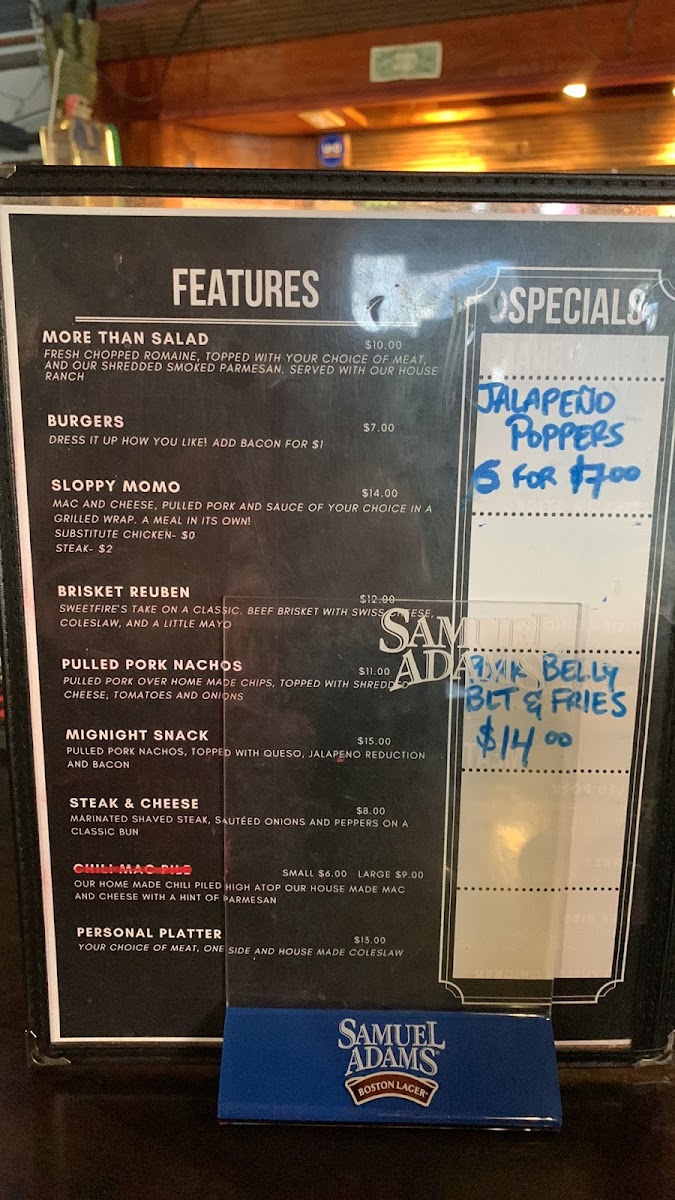 FEATURES
MORE THAN SALAD $10.00
FRESH CHOPPED ROMAINE, TOPPED WITH YOUR CHOICE OF MEAT,
AND OUR SHREDDED SMOKED PARMESAN. SERVED WITH OUR HOUSE
RANCH
BURGERS $7.00
DRESS IT UP HOW YOU LIKE! ADD BACON FOR $1
SLOPPY MOMO $14.00
MAC AND CHEESE, PULLED PORK AND SAUCE OF YOUR CHOICE IN A
GRILLED WRAP. A MEAL IN ITS OWN!
SUBSTITUTE CHICKEN- $0
STEAK- $2
BRISKET REUBEN $12.00
SWEETFIRE'S TAKE ON A CLASSIC. BEEF BRISKET WITH SWISS CHEESE,
COLESLAW, AND A LITTLE MAYO
PULLED PORK NACHOS $11.00
PULLED PORK OVER HOME MADE CHIPS, TOPPED WITH SHREDDED
CHEESE, TOMATOES AND ONIONS
MIGNIGHT SNACK $15.00
PULLED PORK NACHOS, TOPPED WITH QUESO, JALAPENO REDUCTION
AND BACON
STEAK & CHEESE $8.00
MARINATED SHAVED STEAK, SAUTÉED ONIONS AND PEPPERS ON A
CLASSIC BUN
CHILI MAC PILE SMALL $6.00 LARGE $9.00
OUR HOME MADE CHILI PILED HIGH ATOP OUR HOUSE MADE MAC
AND CHEESE WITH A HINT OF PARMESAN
PERSONAL PLATTER $13.00
YOUR CHOICE OF MEAT, ONE SIDE AND HOUSE MADE COLESLAW
SPECIALS
JALAPEÑO
POPPERS
6 FOR $7.00
PORK BELLY
BLT & FRIES
$14.00
SAMUEL
ADAMS
SAMUEL
ADAMS
BOSTON LAGER